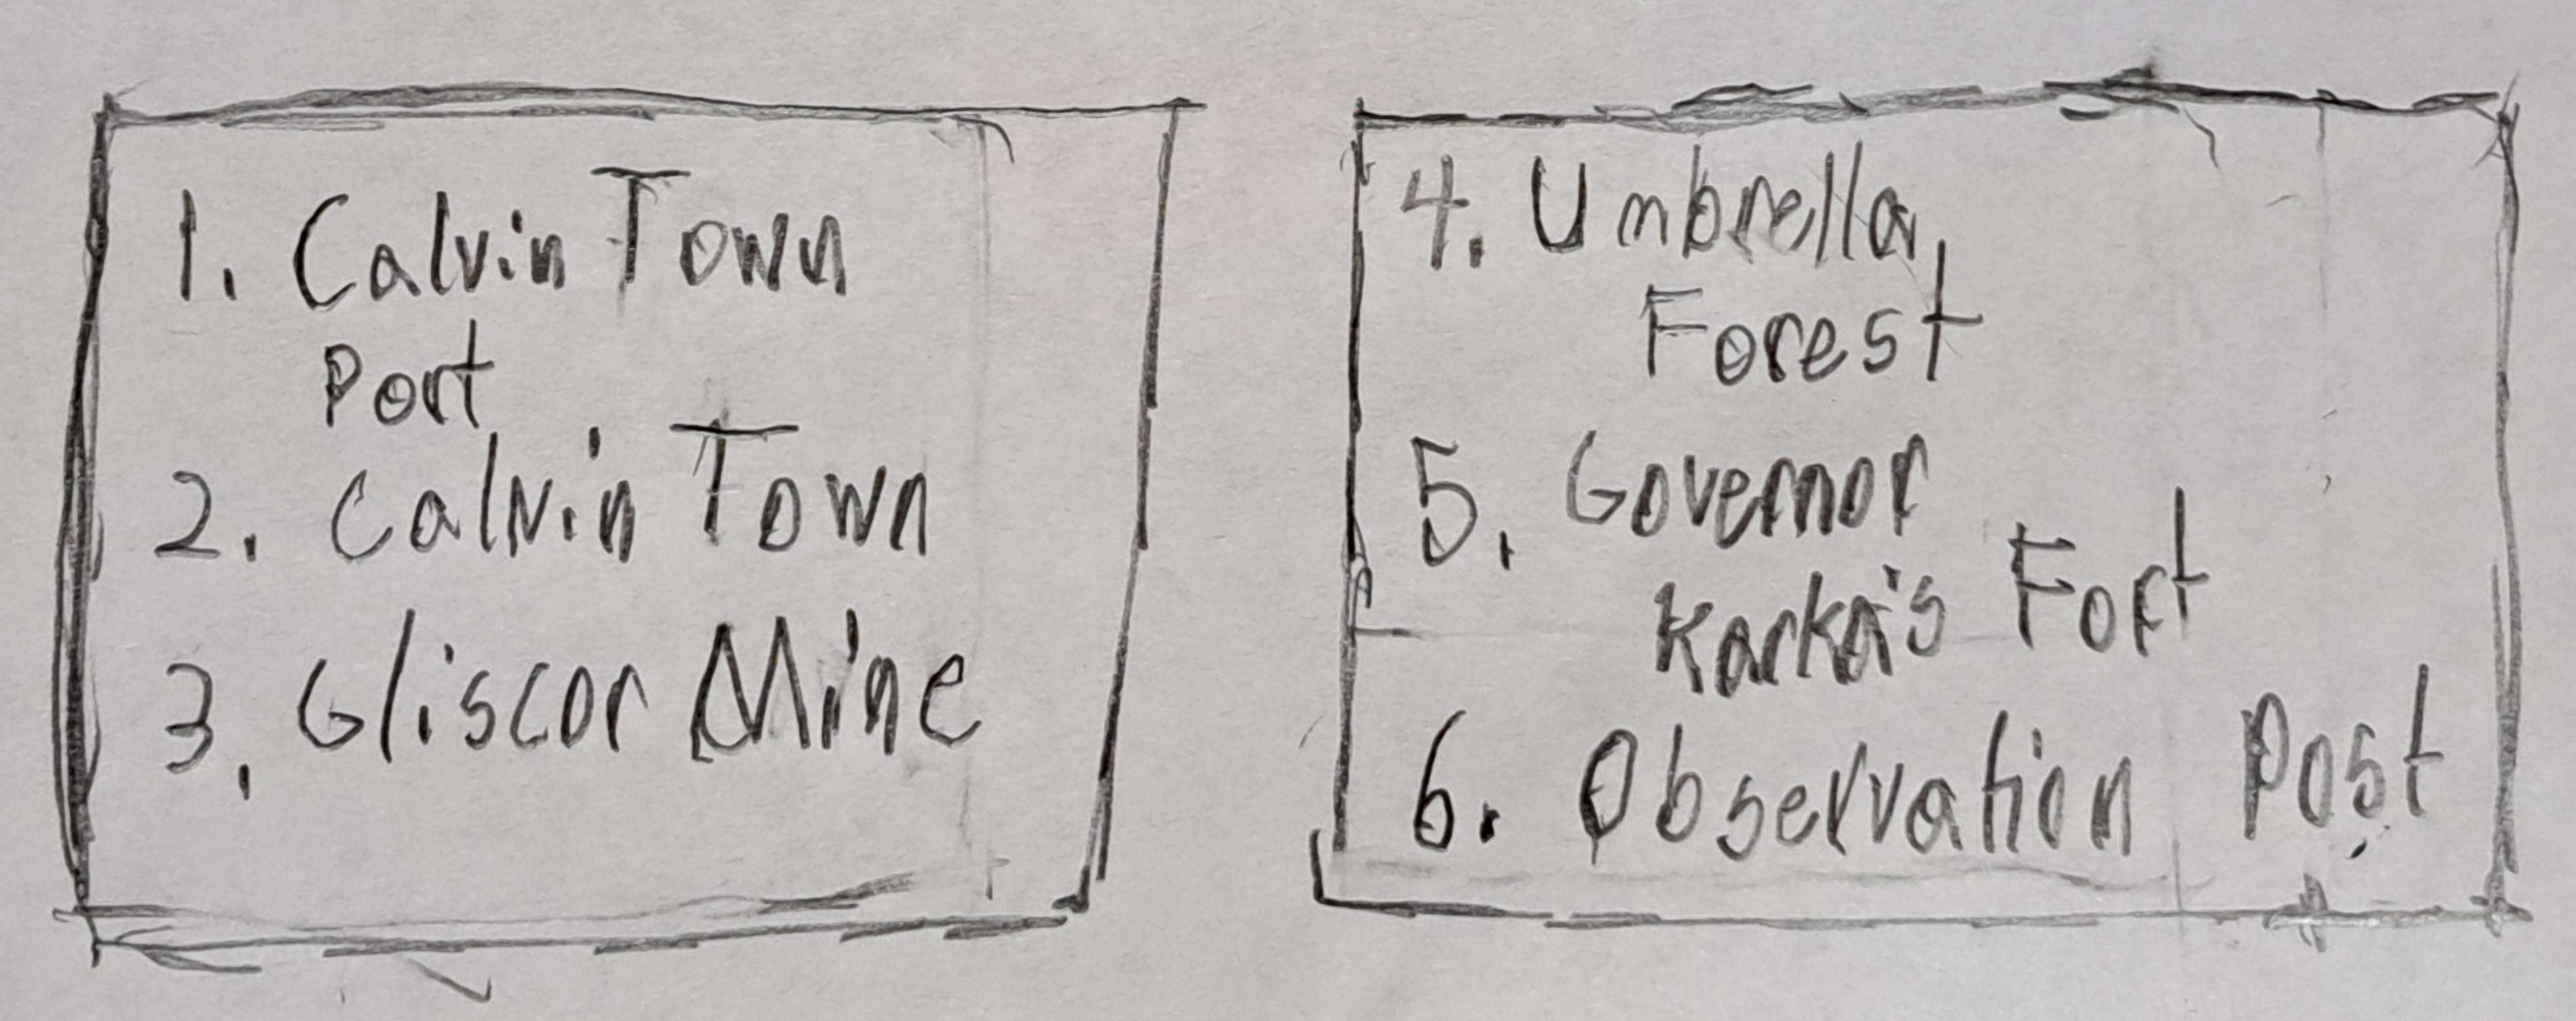 1. Calvin Town
Port
2. Calvin Town
3. Gliscor Mine
4. Umbrella
Forest
5. Governor
Karka's Fort
6. Observation Post